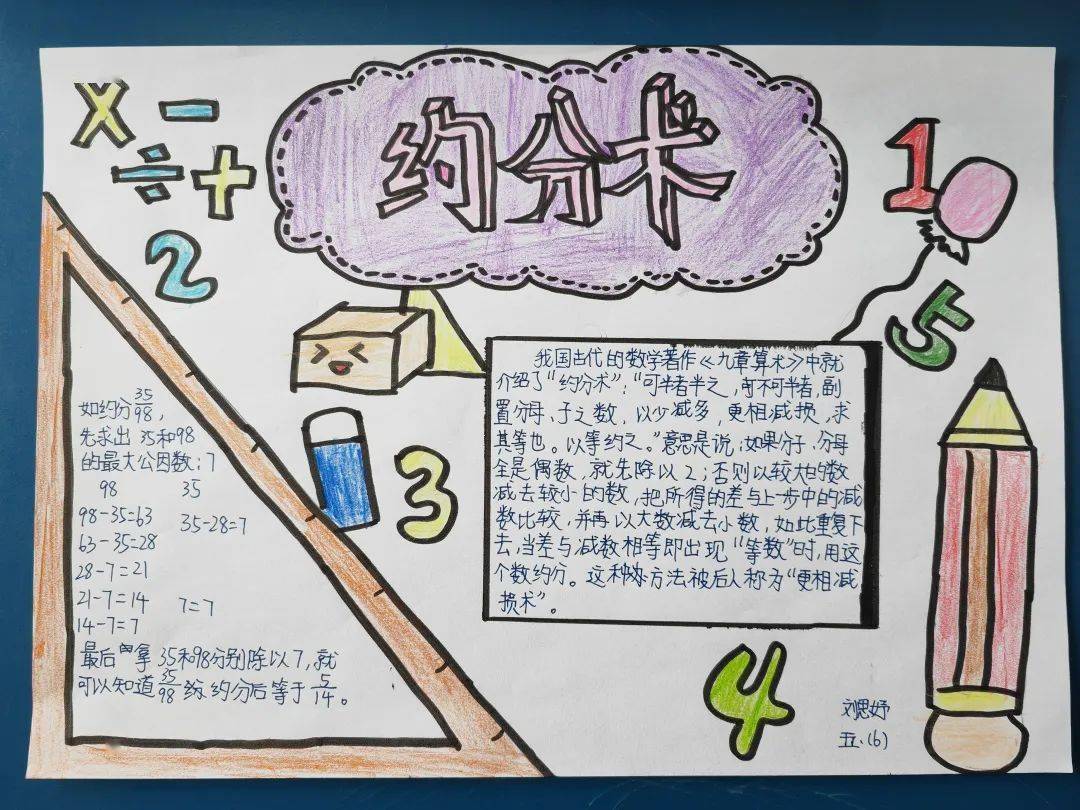 约分术
X -
÷ +
2
1
5
3
4
如约分35/98,
先求出 35和98
的最大公因数:7
98 35
98-35=63 35-28=7
63-35=28
28-7=21
21-7=14 7=7
14-7=7
最后 拿 35和98分别除以7,就
可以知道35/98 约分后等于5/14。
我国古代的数学著作《九章算术》中就
介绍了“约分术”:“可半者半之,不可半者,副
置分母、子之数,以少减多,更相减损,求
其等也。以等约之。”意思是说:如果分子、分母
全是偶数,就先除以2;否则以较大的数
减去较小的数,把所得的差与上一步中的减
数比较,并再以大数减去小数,如此重复下
去,当差与减数相等即出现“等数”时,用这
个数约分。这种方法被后人称为“更相减
损术”。
刘思妤
五.(6)